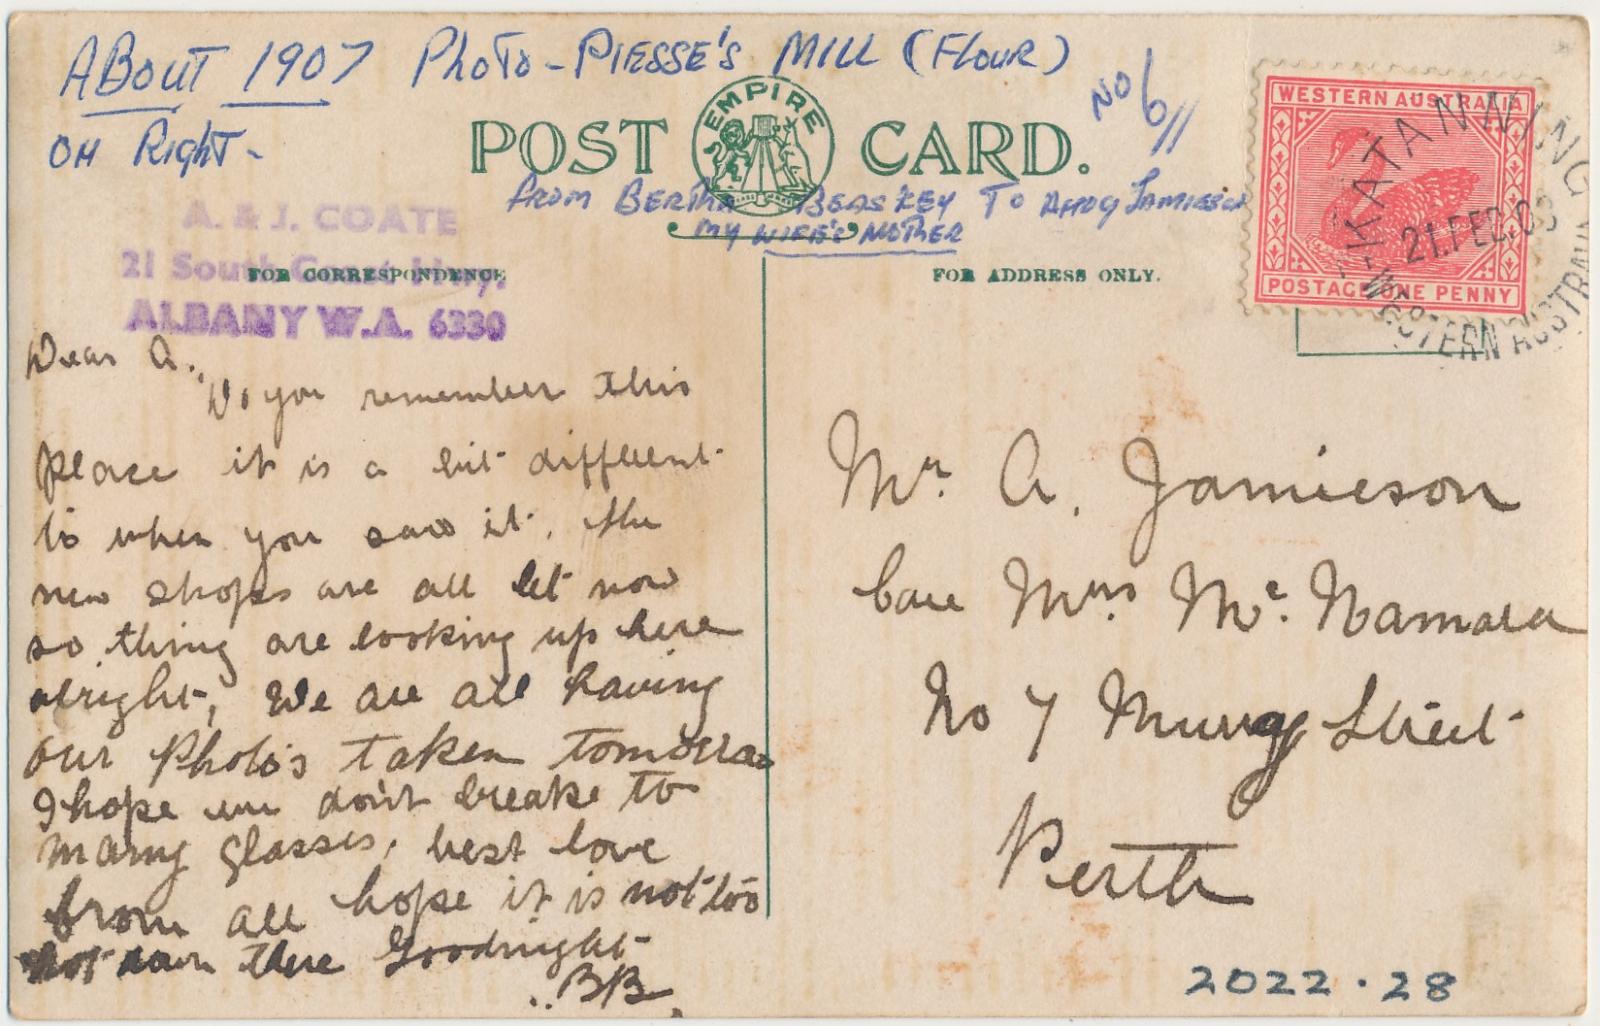 ABOUT 1907 PHOTO - PIESSE'S MILL (FLOUR)
ON RIGHT -
NO 6/11
EMPIRE
POST CARD.
FROM BERTHA BEASKEY TO Jamieson
MY WIFE'S MOTHER
A. & J. COATE
21 South Coast Hwy.
ALBANY W.A. 6330
FOR CORRESPONDENCE
FOR ADDRESS ONLY.
WESTERN AUSTRALIA
POSTAGE ONE PENNY
KATANNING
21.FEB.08
WESTERN AUSTRALIA
Dear A.,
Do you remember this
place it is a bit different
to when you saw it. The
new shops are all let now
so thing are looking up here
alright, We are all having
our Photo's taken tomorrow
I hope we don't breake to
many glasses, best love
from all hope it is not too
hot down there Goodnight
BB.
Mr. A. Jamieson
Care Mrs Mc. Namara
No 7 Murray Street
Perth
2022.28